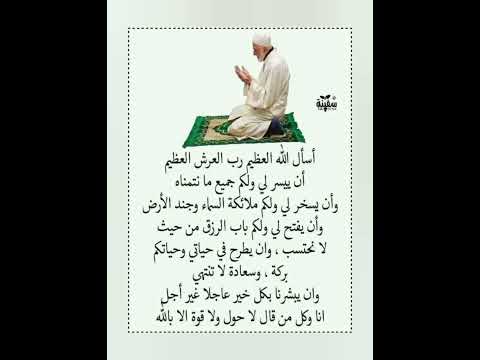 سفينة
أسأل الله العظيم رب العرش العظيم
أن ييسر لي ولكم جميع ما نتمناه
وأن يسخر لي ولكم ملائكة السماء وجند الأرض
وأن يفتح لي ولكم باب الرزق من حيث
لا نحتسب ، وان يطرح في حياتي وحياتكم
بركة ، وسعادة لا تنتهي
وان يبشرنا بكل خير عاجلا غير أجل
انا وكل من قال لا حول ولا قوة الا بالله